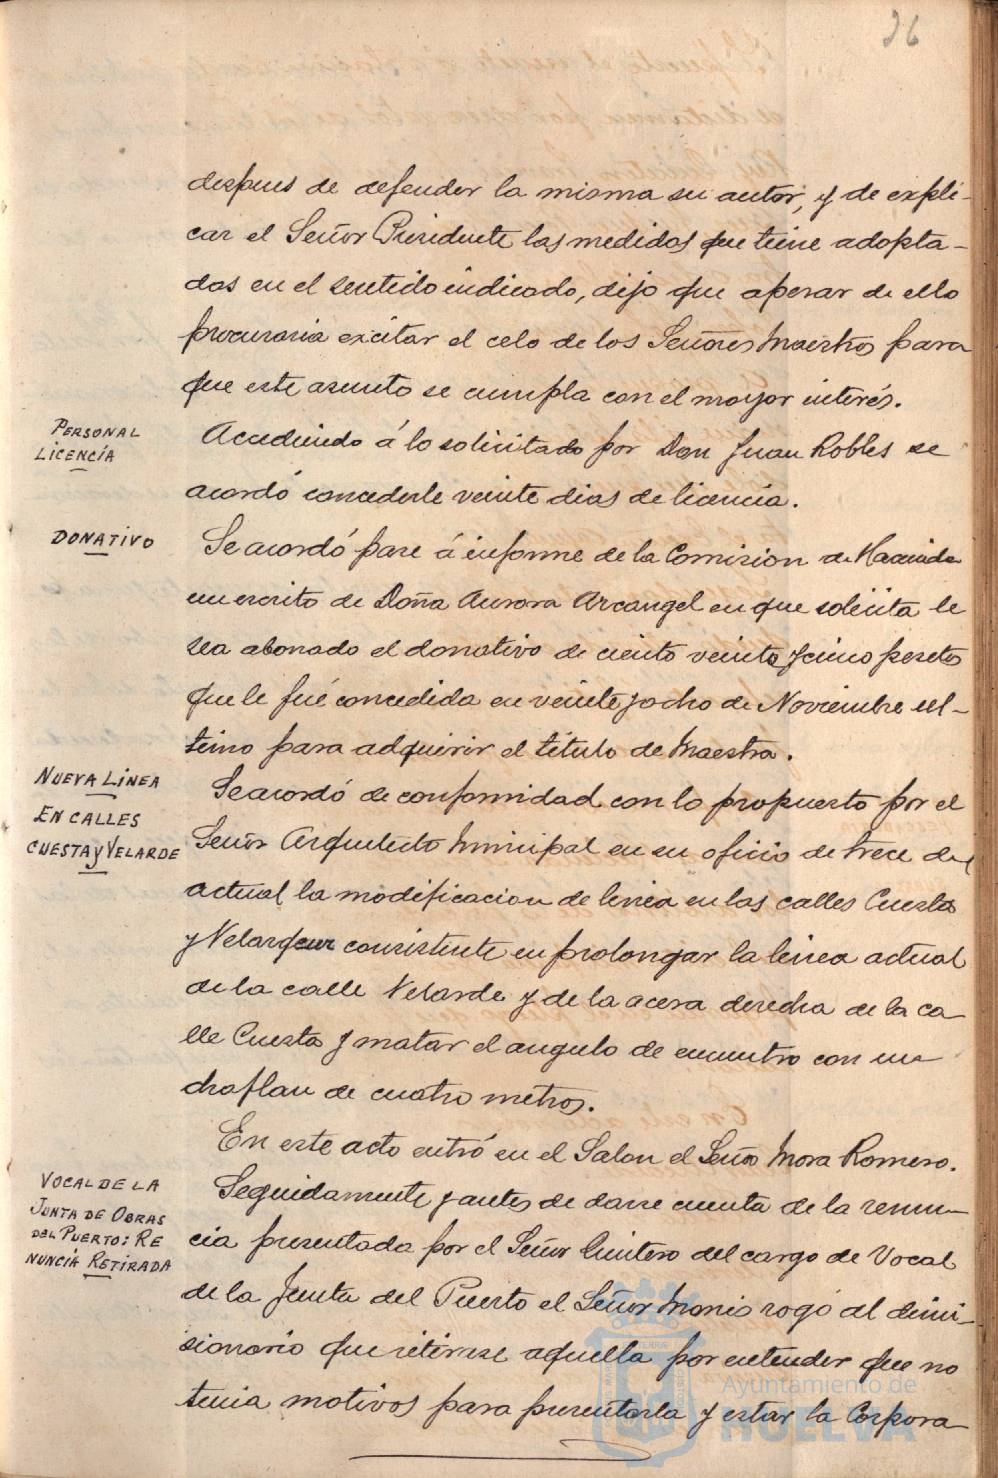 26
despues de defender la misma su autor, y de expli-
car el Señor Presidente las medidas que tiene adopta-
das en el sentido indicado, dijo que apesar de ello
procuraria excitar el celo de los Señores Maestros para
que este asunto se cumpla con el mayor interés.
PERSONAL
LICENCÍA
Accediendo á lo solicitado por Don Juan Robles se
acordó concederle veinte dias de licencia.
DONATIVO
Se acordó pase á informe de la Comision de Hacienda
un escrito de Doña Aurora Arcangel en que solicita le
sea abonado el donativo de ciento veinte y cinco pesetas
que le fué concedida en veinte y ocho de Noviembre úl-
timo para adquirir el título de Maestra.
NUEVA LINEA
EN CALLES
CUESTA y VELARDE
Se acordó de conformidad con lo propuesto por el
Señor Arquitecto Municipal en su oficio de trece del
actual la modificacion de linea en las calles Cuesta
y Velarde consistente en prolongar la linea actual
de la calle Velarde y de la acera derecha de la ca-
lle Cuesta y matar el angulo de encuentro con un
chaflan de cuatro metros.
En este acto entró en el Salon el Señor Mora Romero.
VOCAL DE LA
JUNTA DE OBRAS
DEL PUERTO: RE
NUNCIA RETIRADA
Seguidamente y antes de darse cuenta de la renun-
cia presentada por el Señor Quintero del cargo de Vocal
de la Junta del Puerto el Señor Monis rogó al dimi-
sionario que retirase aquella por entender que no
tenia motivos para presentarla y estar la Corpora
Ayuntamiento de
HUELVA